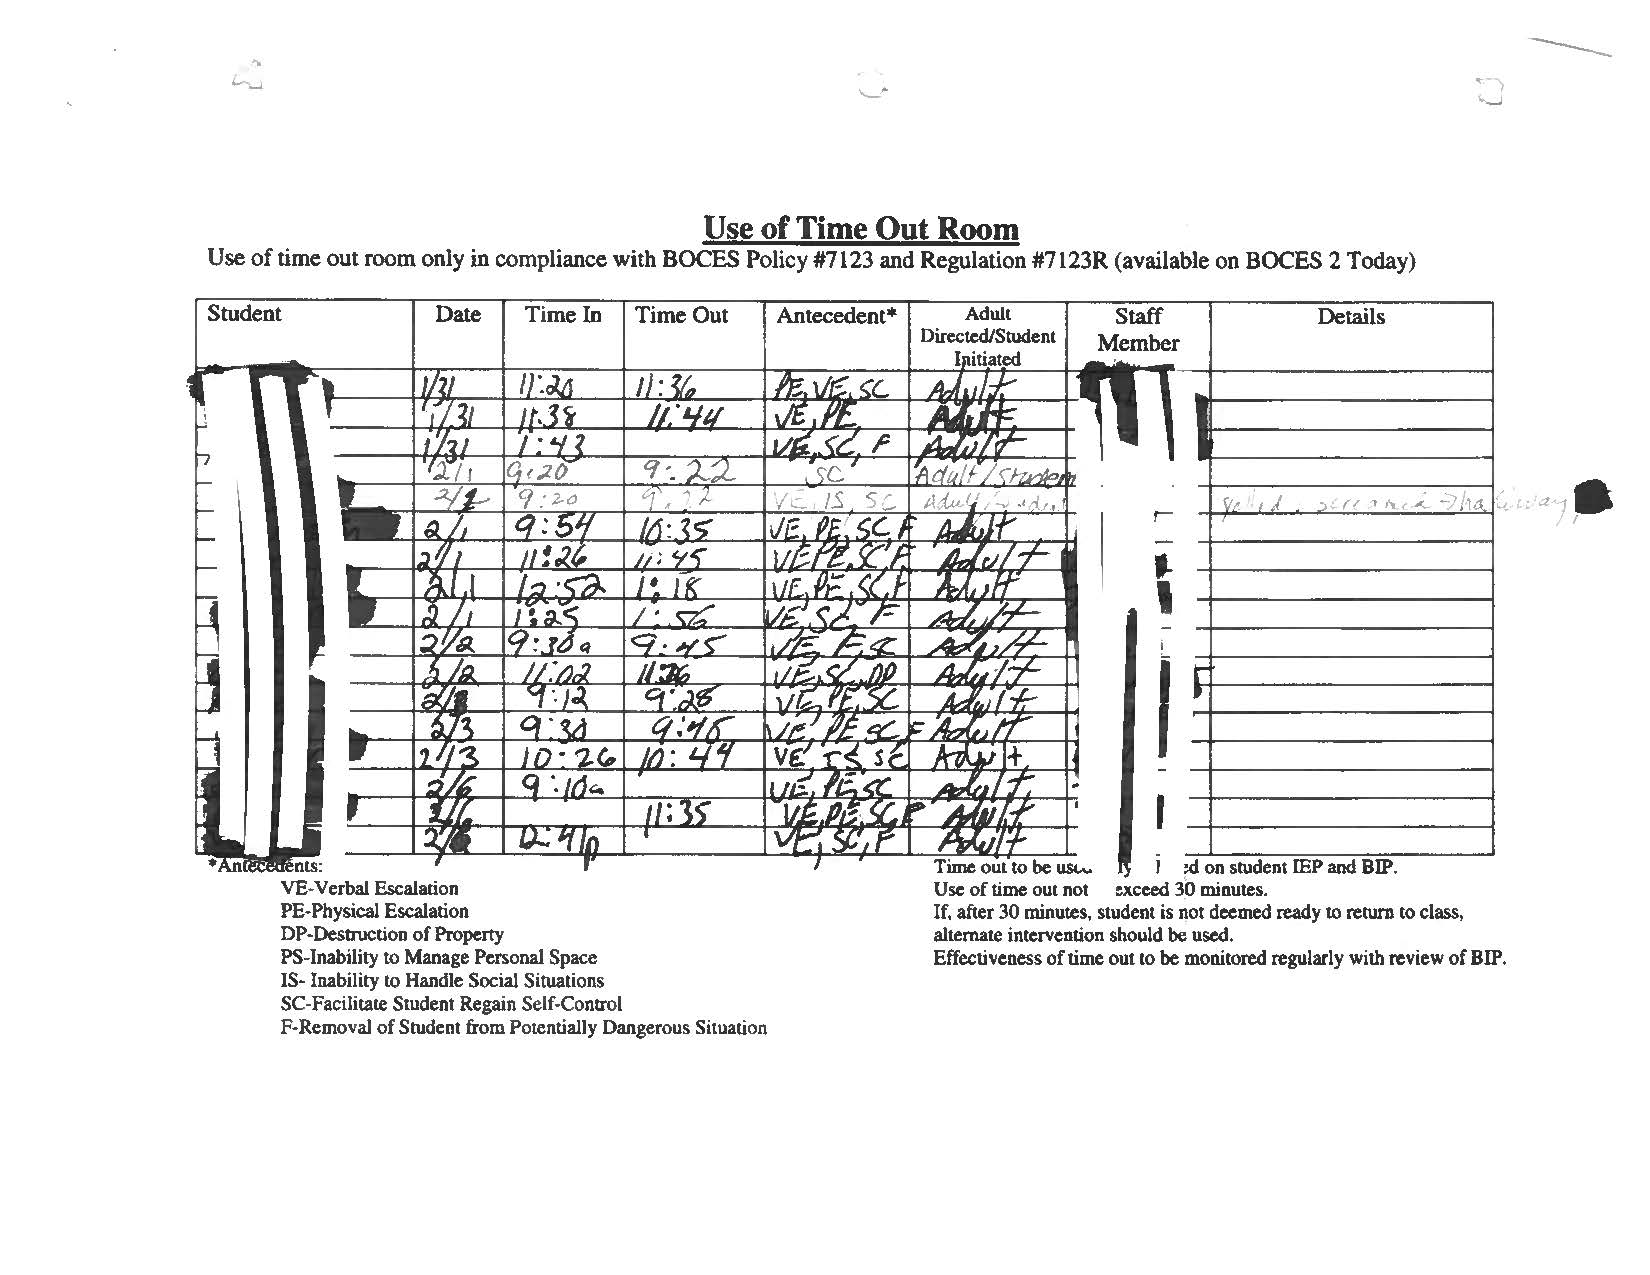 Use of Time Out Room
Use of time out room only in compliance with BOCES Policy #7123 and Regulation #7123R (available on BOCES 2 Today)
Student Date Time In Time Out Antecedent* Adult Directed/Student Initiated Staff Member Details
1/31 11:20 11:36 PE, VE, SC Adult
1/31 11:38 11:44 VE, PE, Adult
1/31 1:43 VE, SC, F Adult
2/1 9:20 9:22 SC Adult/Studen
9:20 VE, IS, SC Adult
2/1 9:54 10:35 VE, PE, SC, F Adult
2/1 11:26 11:45 VE PE, SC, F Adult
2/1 12:52 1:18 VE, PE, SC, F Adult
2/1 1:25 1:56 VE, SC, F Adult
2/2 9:30a 9:45 VE, F, SC Adult
2/2 11:02 VE, SC, DP Adult
9:12 9:28 VE, PE, SC Adult
2/3 9:30 VE, PE SC F Adult
2/13 10:26 10:49 VE, IS, SC Adult
2/6 9:10a VE, PE, SC Adult
2/6 11:35 VE, PE, SC, F Adult
12:41p VE, SC, F Adult
*Antecedents:
VE-Verbal Escalation
PE-Physical Escalation
DP-Destruction of Property
PS-Inability to Manage Personal Space
IS- Inability to Handle Social Situations
SC-Facilitate Student Regain Self-Control
F-Removal of Student from Potentially Dangerous Situation
Time out to be on student IEP and BIP.
Use of time out not exceed 30 minutes.
If, after 30 minutes, student is not deemed ready to return to class,
alternate intervention should be used.
Effectiveness of time out to be monitored regularly with review of BIP.